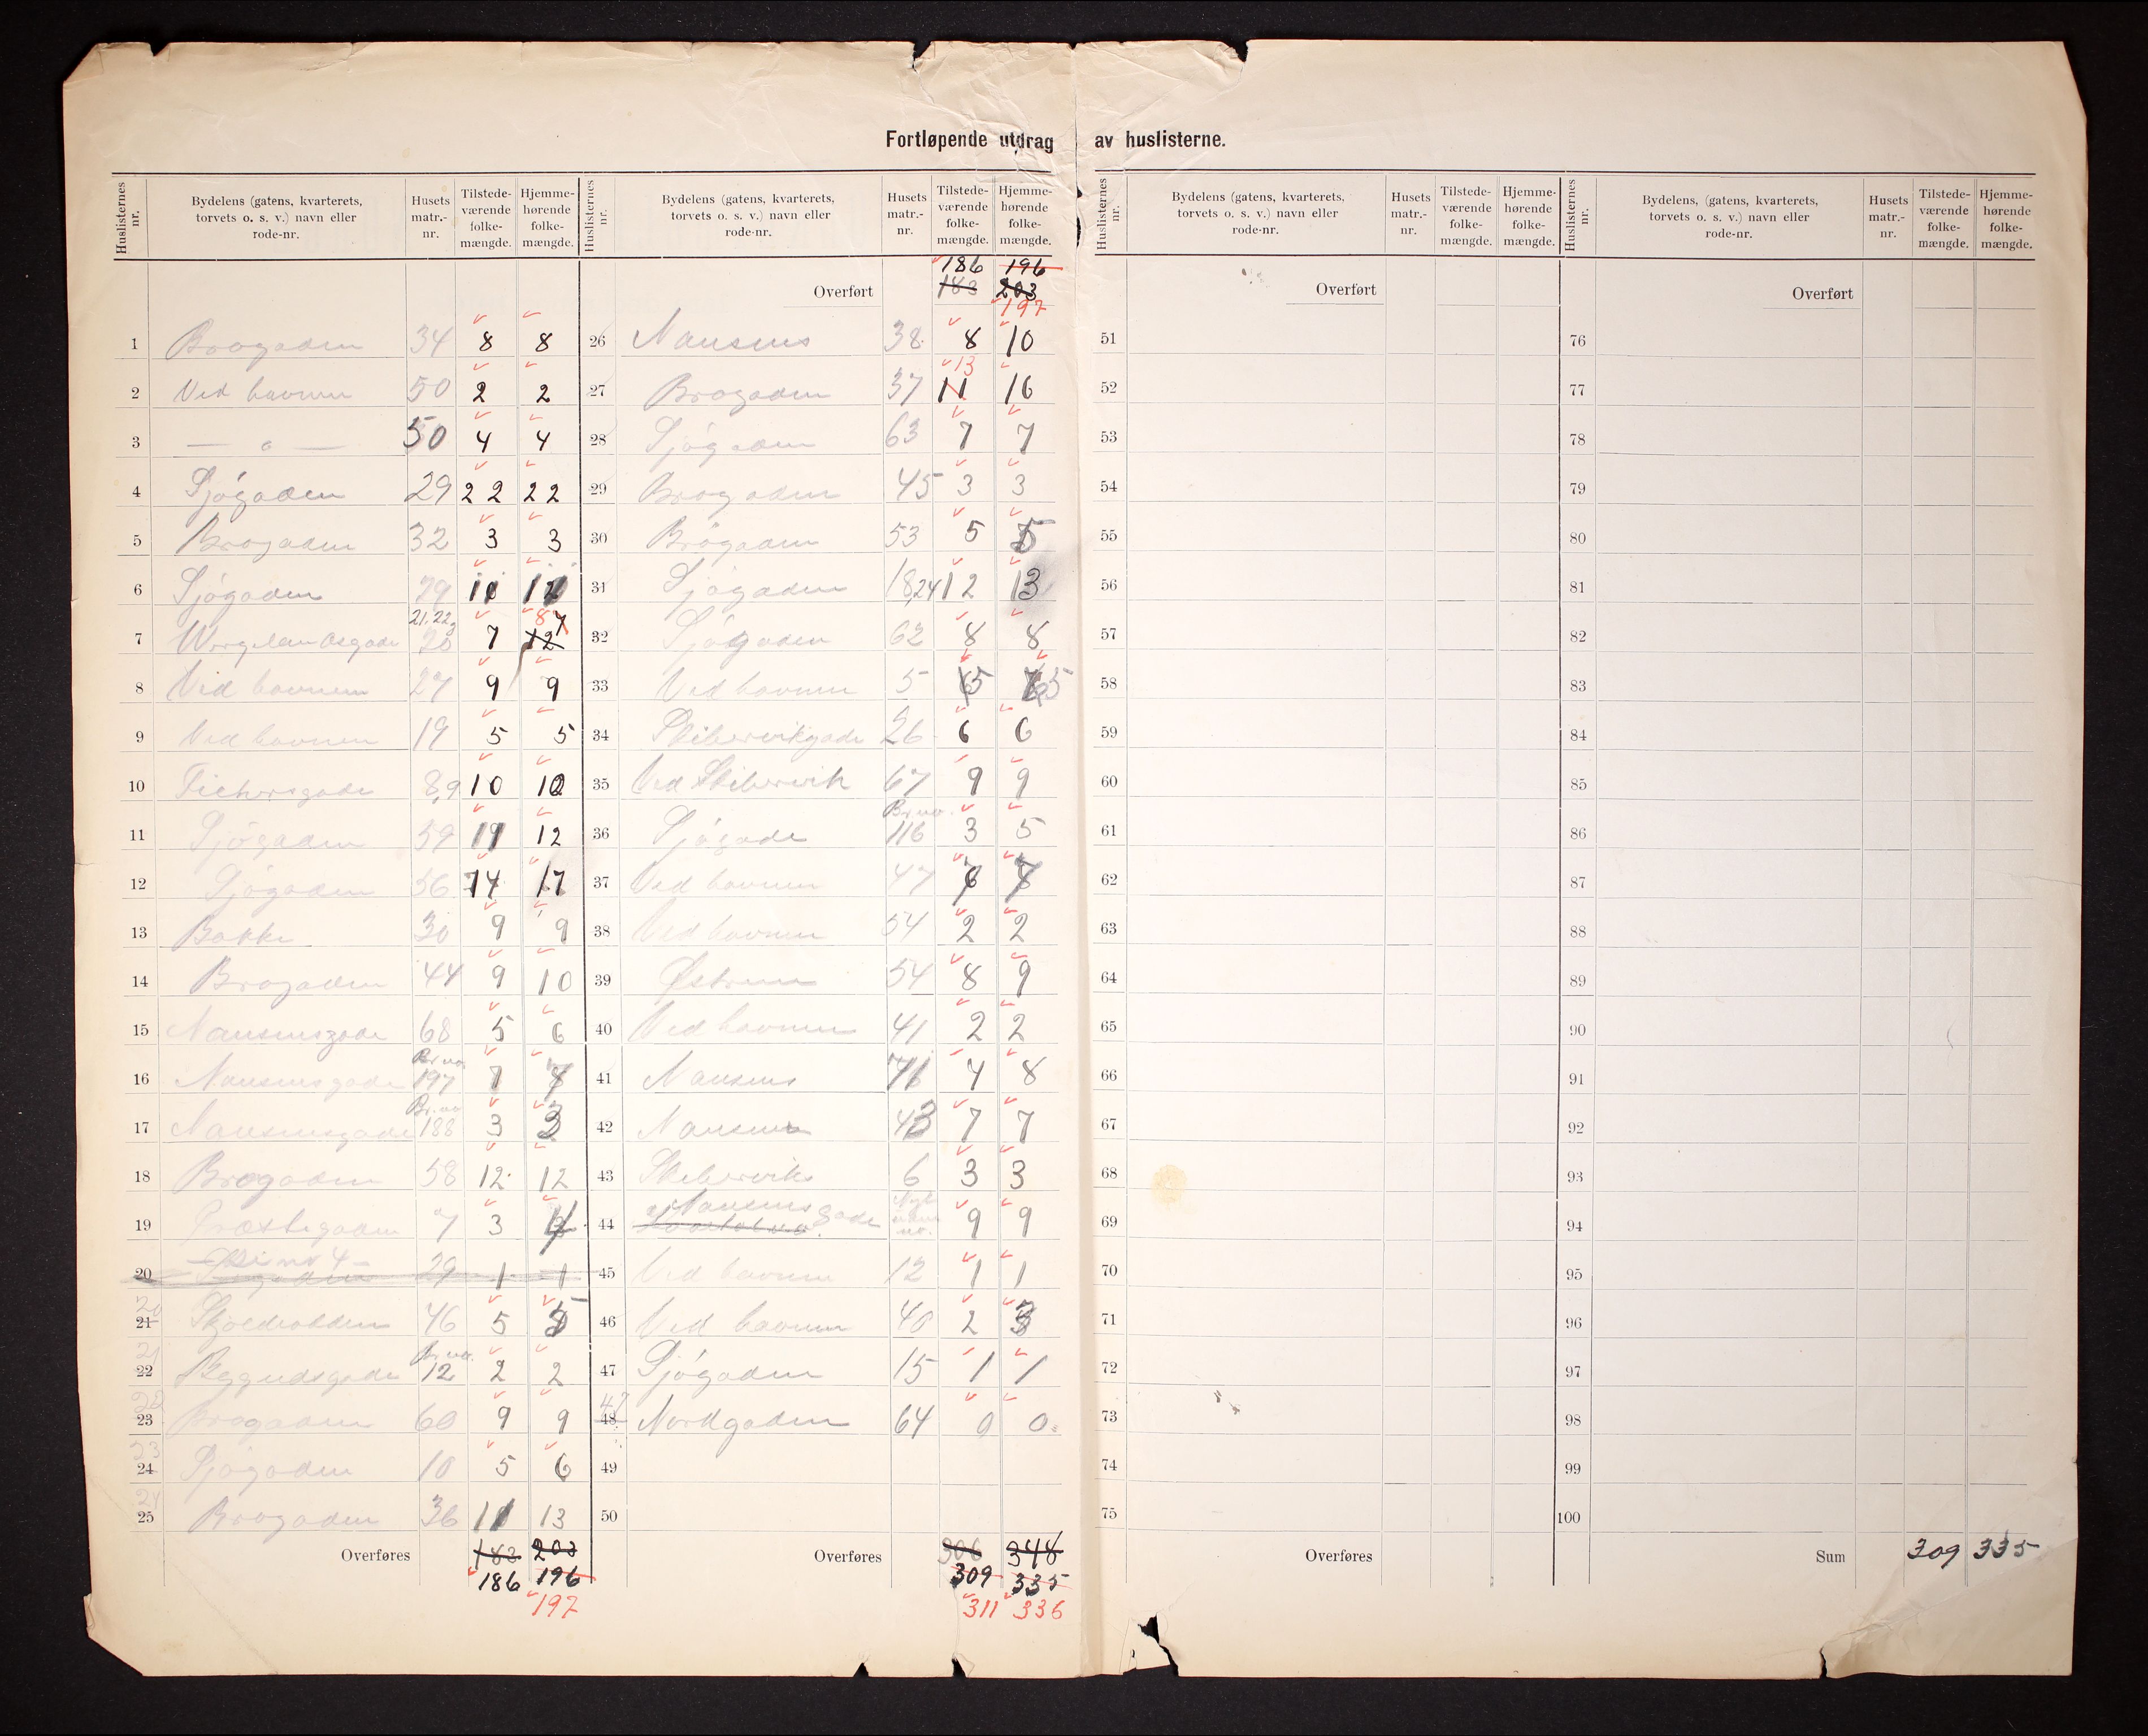 Fortløpende utdrag av huslisterne.
Huslisternes nr. | Bydelens (gatens, kvarterets, torvets o. s. v.) navn eller rode-nr. | Husets matr.-nr. | Tilstede-værende folke-mængde. | Hjemme-hørende folke-mængde.
Huslisternes nr. | Bydelens (gatens, kvarterets, torvets o. s. v.) navn eller rode-nr. | Husets matr.-nr. | Tilstede-værende folke-mængde. | Hjemme-hørende folke-mængde.
1 Brogaden 34 8 8
2 Ved havnen 50 2 2
3 — o — 50 4 4
4 Sjøgaden 29 22 22
5 Brogaden 32 3 3
6 Sjøgaden 29
7 21, 22, 7 8
8 Ved havnen 27 9 9
9 Ved havnen 19 5 5
10 8,9 10 10
11 Sjøgaden 59 12
12 Sjøgaden 56 14 17
13 Bakke 30 9 9
14 Brogaden 44 9 10
15 Nansensgade 68 5 6
16 Nansensgade Br. no. 197 7
17 Nansensgade Br. no. 188 3 3
18 Brogaden 58 12 12
19 Præstegaden 7 3
20 29 1 1
20 21 46 5 5
21 22 Br. no. 12 2 2
22 23 Brogaden 60 9 9
23 24 Sjøgaden 10 5 6
24 25 Brogaden 36 13
Overføres 183 203
186 196
197
186 196
Overført 183 203
197
26 Nansens 38 8 10
27 Brogaden 37 11 13 16
28 Sjøgaden 63 7 7
29 Brogaden 45 3 3
30 Brogaden 53 5 5
31 Sjøgaden 18,24 12 13
32 Sjøgaden 62 8 8
33 Ved havnen 5 5 5
34 26 6 6
35 67 9 9
36 Sjøgade Br. no. 116 3 5
37 Ved havnen 47
38 Ved havnen 54 2 2
39 54 8 9
40 Ved havnen 41 2 2
41 Nansens 71 4 8
42 Nansens 43 7 7
43 6 3 3
44 Nansensgade 9 9
45 Ved havnen 12 1 1
46 Ved havnen 40 2 3
47 Sjøgaden 15 1 1
47 48 Nordgaden 64 0 0
49
50
Overføres 306 348
309 335
311 336
Huslisternes nr. | Bydelens (gatens, kvarterets, torvets o. s. v.) navn eller rode-nr. | Husets matr.-nr. | Tilstede-værende folke-mængde. | Hjemme-hørende folke-mængde.
Overført
51
52
53
54
55
56
57
58
59
60
61
62
63
64
65
66
67
68
69
70
71
72
73
74
75
Overføres
Huslisternes nr. | Bydelens, (gatens, kvarterets, torvets o. s. v.) navn eller rode-nr. | Husets matr.-nr. | Tilstede-værende folke-mængde. | Hjemme-hørende folke-mængde.
Overført
76
77
78
79
80
81
82
83
84
85
86
87
88
89
90
91
92
93
94
95
96
97
98
99
100
Sum 309 335